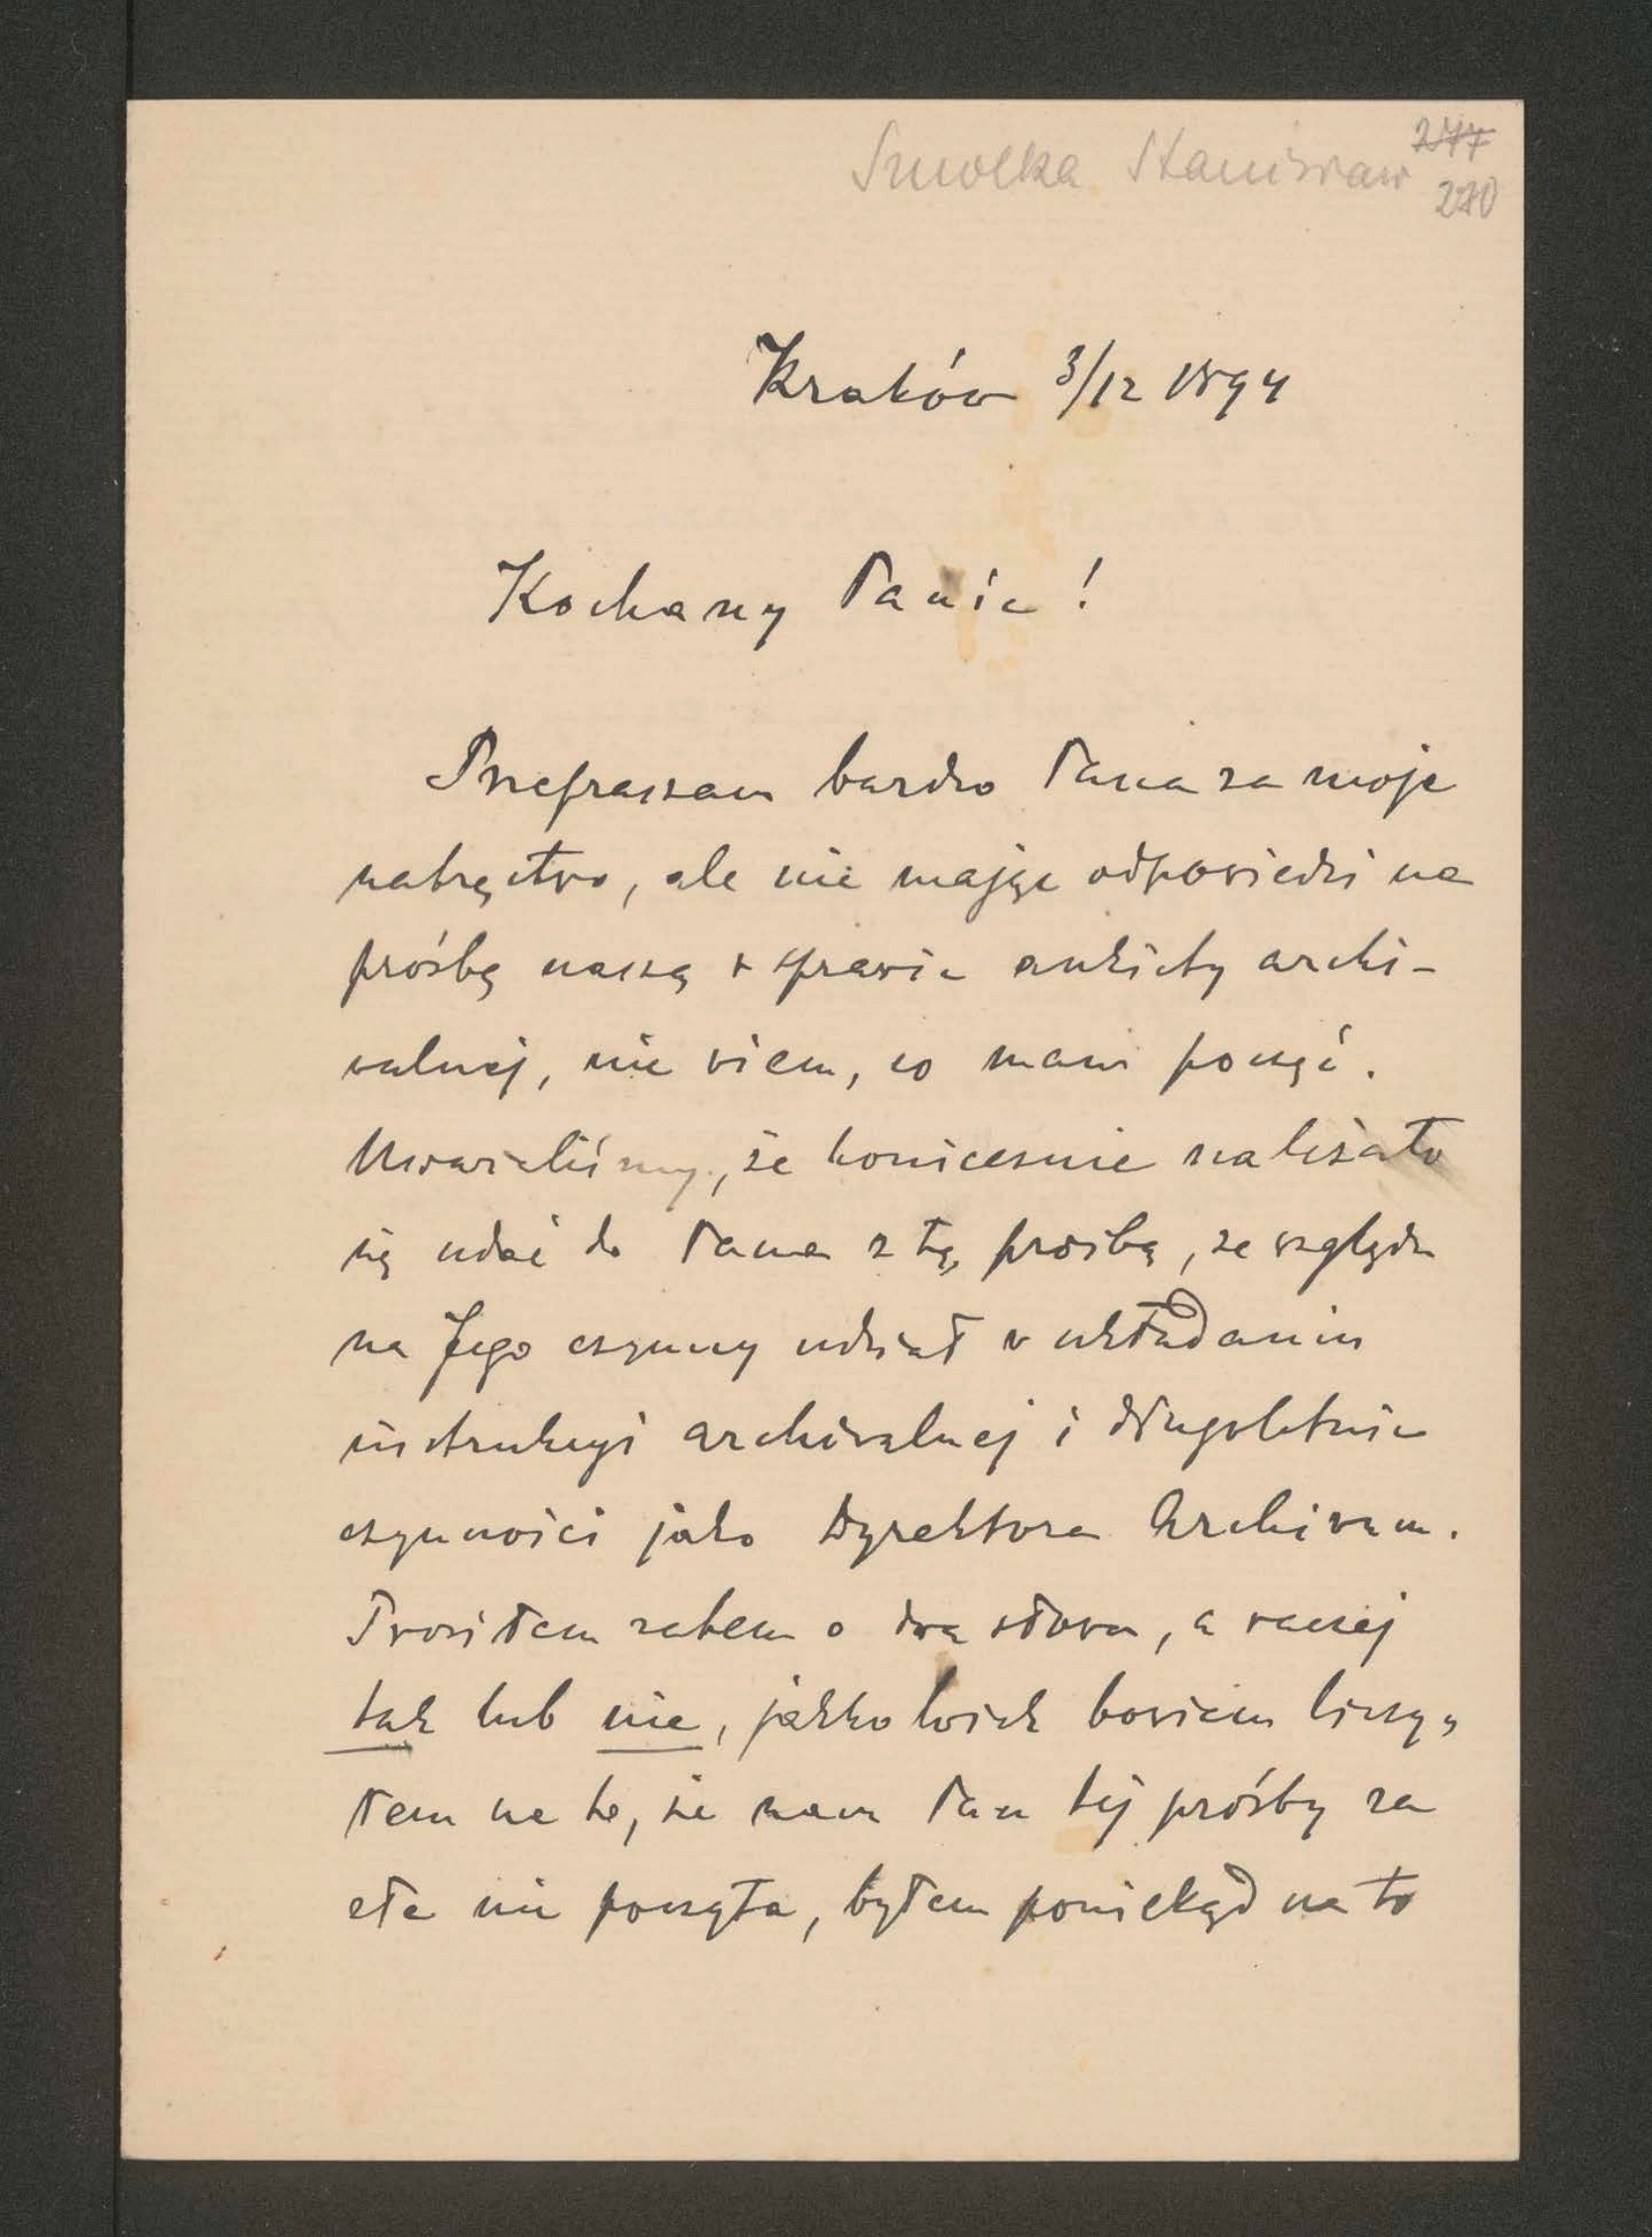 Smolka Stanisław
277
270
Kraków 3/12 1894
Kochany Panie!
Przepraszam bardzo Pana za moje
natręctwo, ale nie mając odpowiedzi na
prośbę naszą w sprawie ankiety archi-
walnej, nie wiem, co mam począć.
Uważaliśmy, że koniecznie należało
się udać do Pana z tą prośbą, ze względu
na Jego czynny udział w układaniu
instrukcyi archiwalnej i długoletnie
czynności jako Dyrektora Archiwum.
Prosiłem zatem o dwa słowa, a raczej
tak lub nie, jakkolwiek bowiem liczy-
łem na to, że nam Pan tej prośby za
złe nie poczyta, byłem poniekąd na to